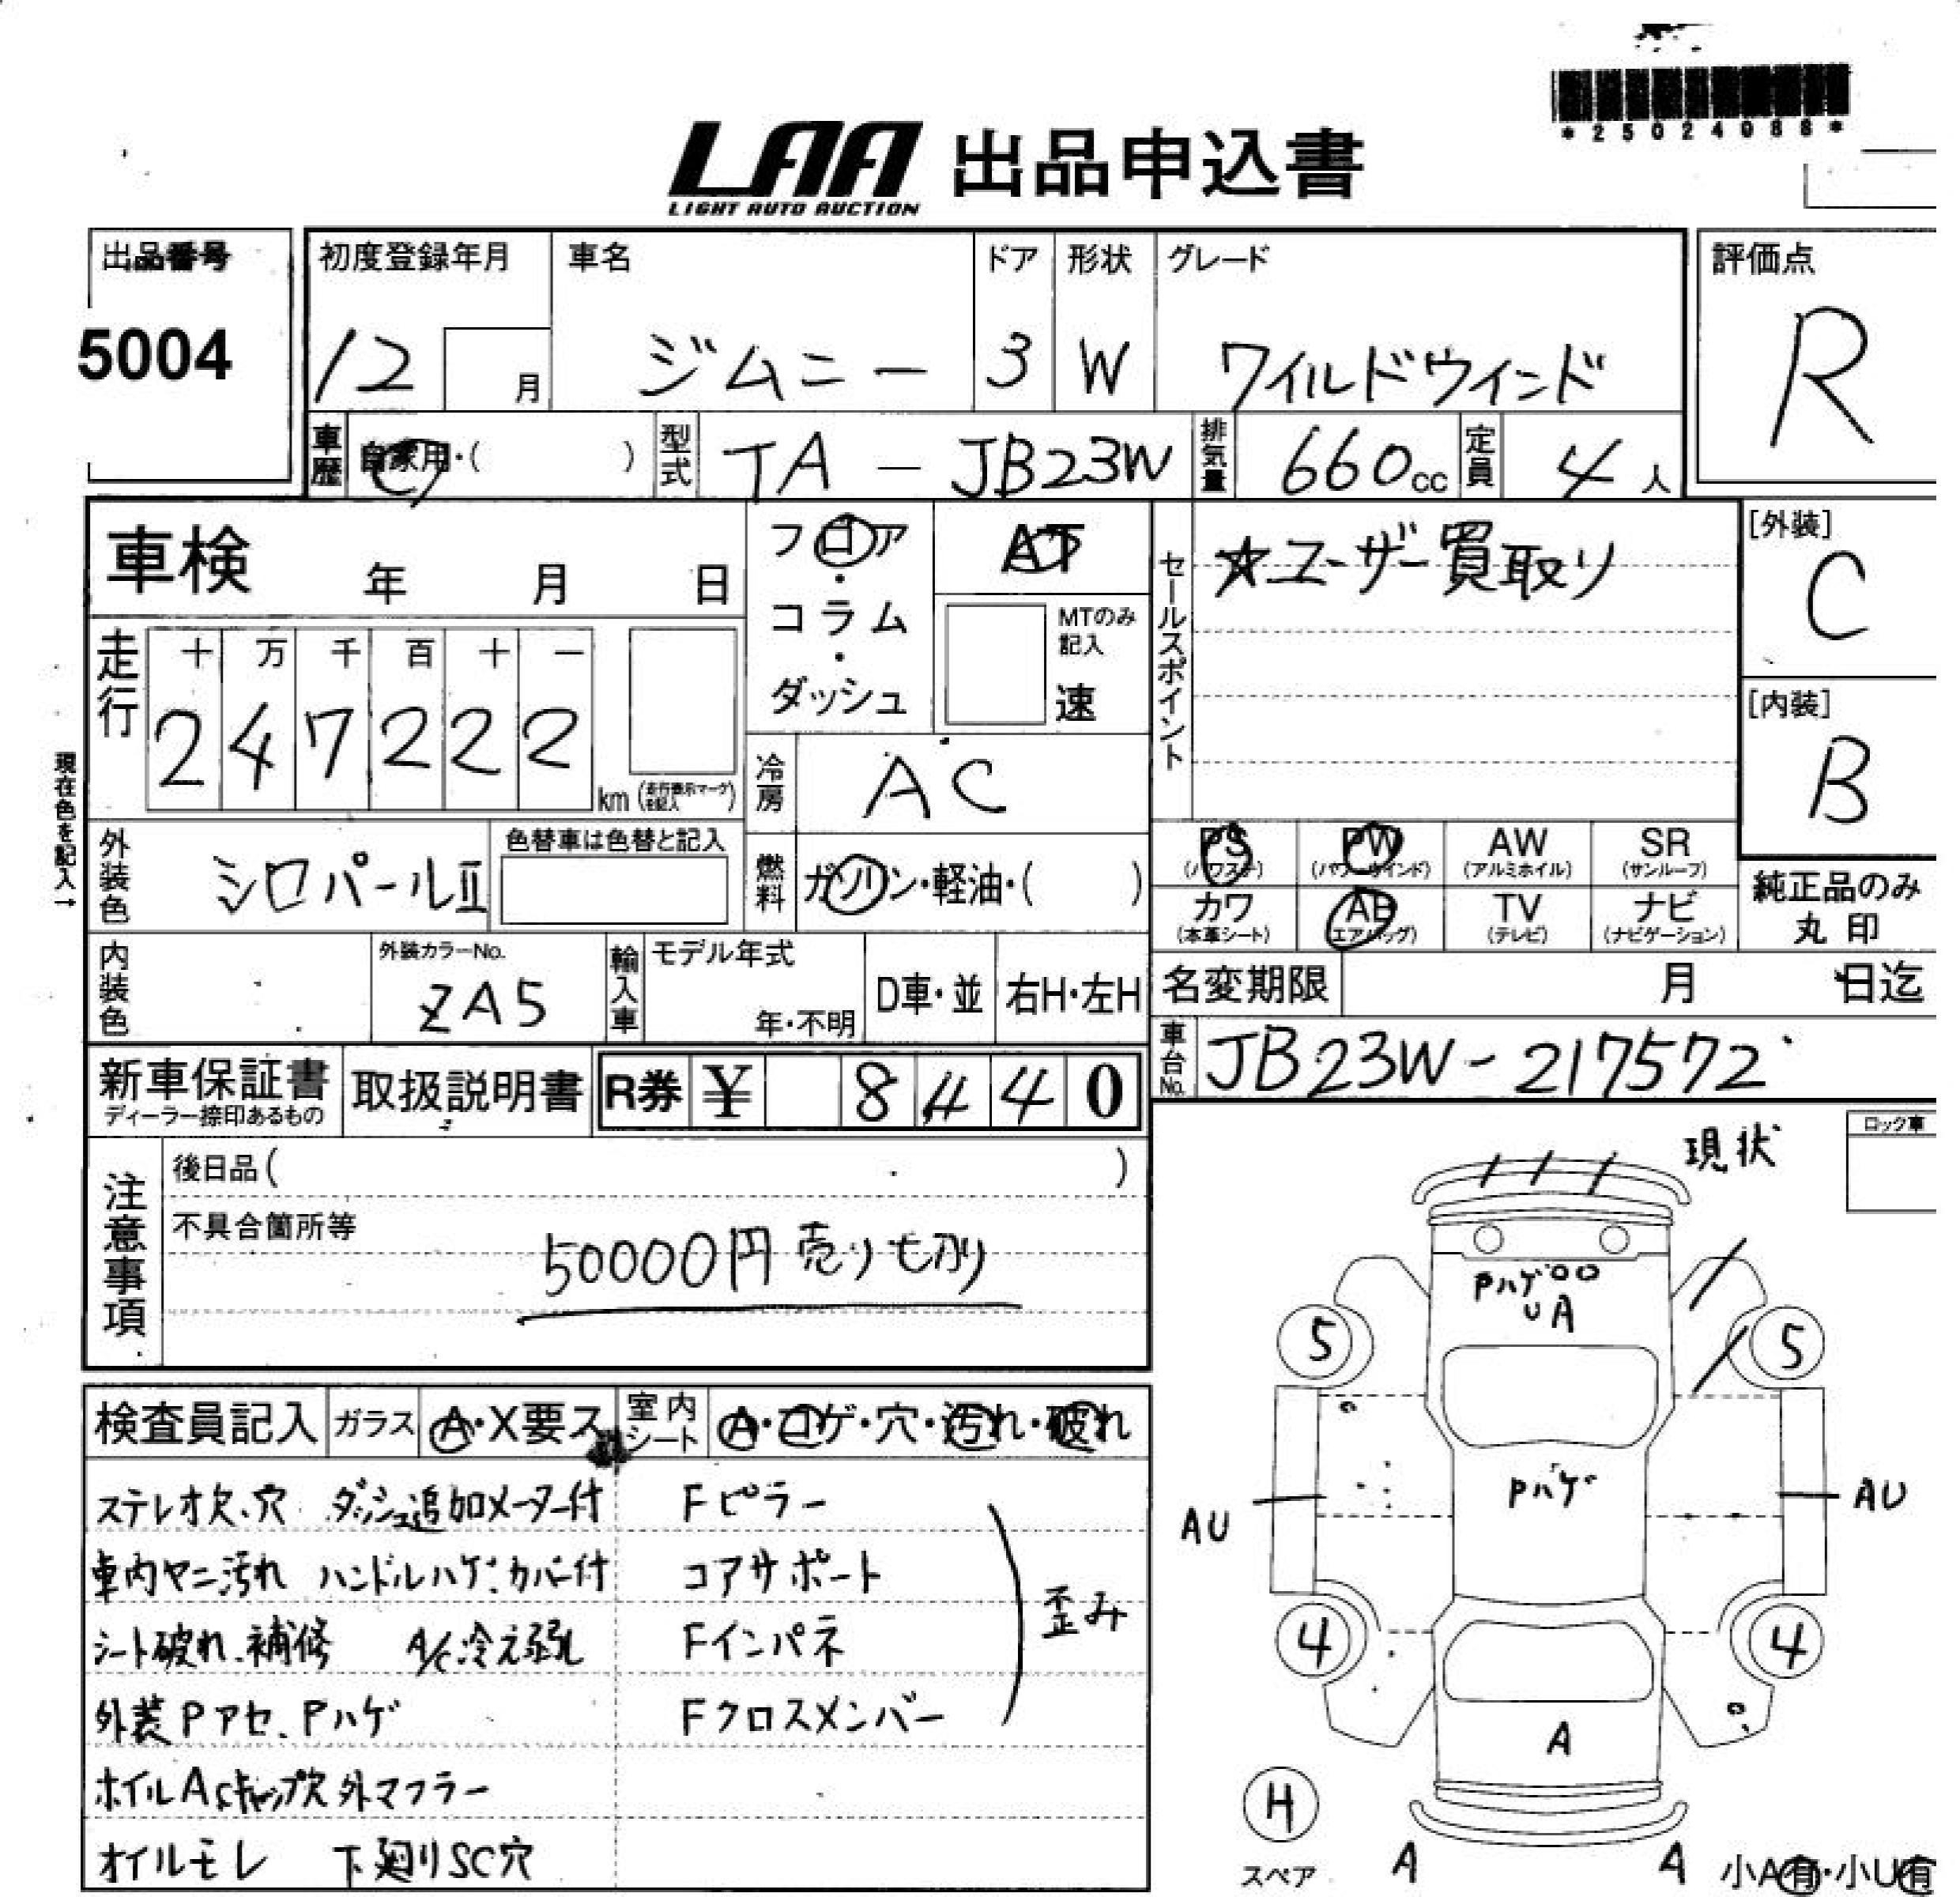 *25024088*
LAA 出品申込書
LIGHT AUTO AUCTION
出品番号
5004
初度登録年月
12 月
車名
ジムニー
ドア
3
形状
W
グレード
ワイルドウインド
評価点
R
車歴 自家用・( )
型式 TA - JB23W
排気量 660cc
定員 4人
車検 年 月 日
フロア・コラム・ダッシュ
AT
MTのみ記入
速
セールスポイント
☆ユーザー買取り
[外装]
C
[内装]
B
走行
十 万 千 百 十 一
2 4 7 2 2 2 km (走行表示マークを記入)
現在色を記入→
冷房 AC
外装色 シロパールⅡ
色替車は色替と記入
燃料 ガソリン・軽油・( )
PS (パワステ)
PW (パワーウインド)
AW (アルミホイル)
SR (サンルーフ)
カワ (本革シート)
AB (エアバッグ)
TV (テレビ)
ナビ (ナビゲーション)
純正品のみ
丸印
内装色
外装カラーNo.
ZA5
輸入車
モデル年式
年・不明
D車・並
右H・左H
名変期限 月 日迄
車台No. JB23W-217572
新車保証書
ディーラー捺印あるもの
取扱説明書
R券 ¥ 8440
注意事項
後日品( )
不具合箇所等
50000円売り切り
現状
ロック車
PハゲUA
5 5
Pハゲ
AU AU
4 4
A
H
スペア
A A
小A有・小U有
検査員記入
ガラス A・X要ス
室内シート A・コゲ・穴・汚れ・破れ
ステレオ欠、穴 ダッシュ追加メーター付
車内ヤニ汚れ ハンドルハゲ、カバー付
シート破れ、補修 A/C冷え弱し
外装Pアセ、Pハゲ
ホイルASキャップ欠 外マフラー
オイルモレ 下廻りSC穴
Fピラー
コアサポート
Fインパネ
Fクロスメンバー
歪み